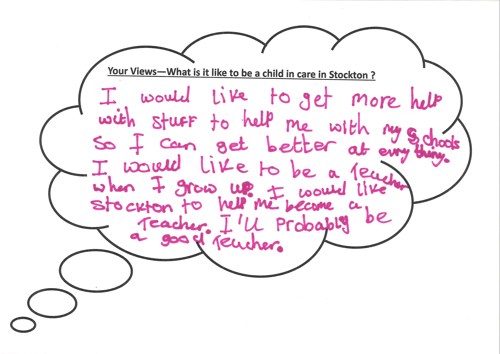 Your Views—What is it like to be a child in care in Stockton ?
I would like to get more help
with stuff to help me with my schools
So I can get better at every thing.
I would like to be a Teacher
when I grow up. I would like
stockton to help me become a
Teacher. I'll Probably be
a good Teacher.